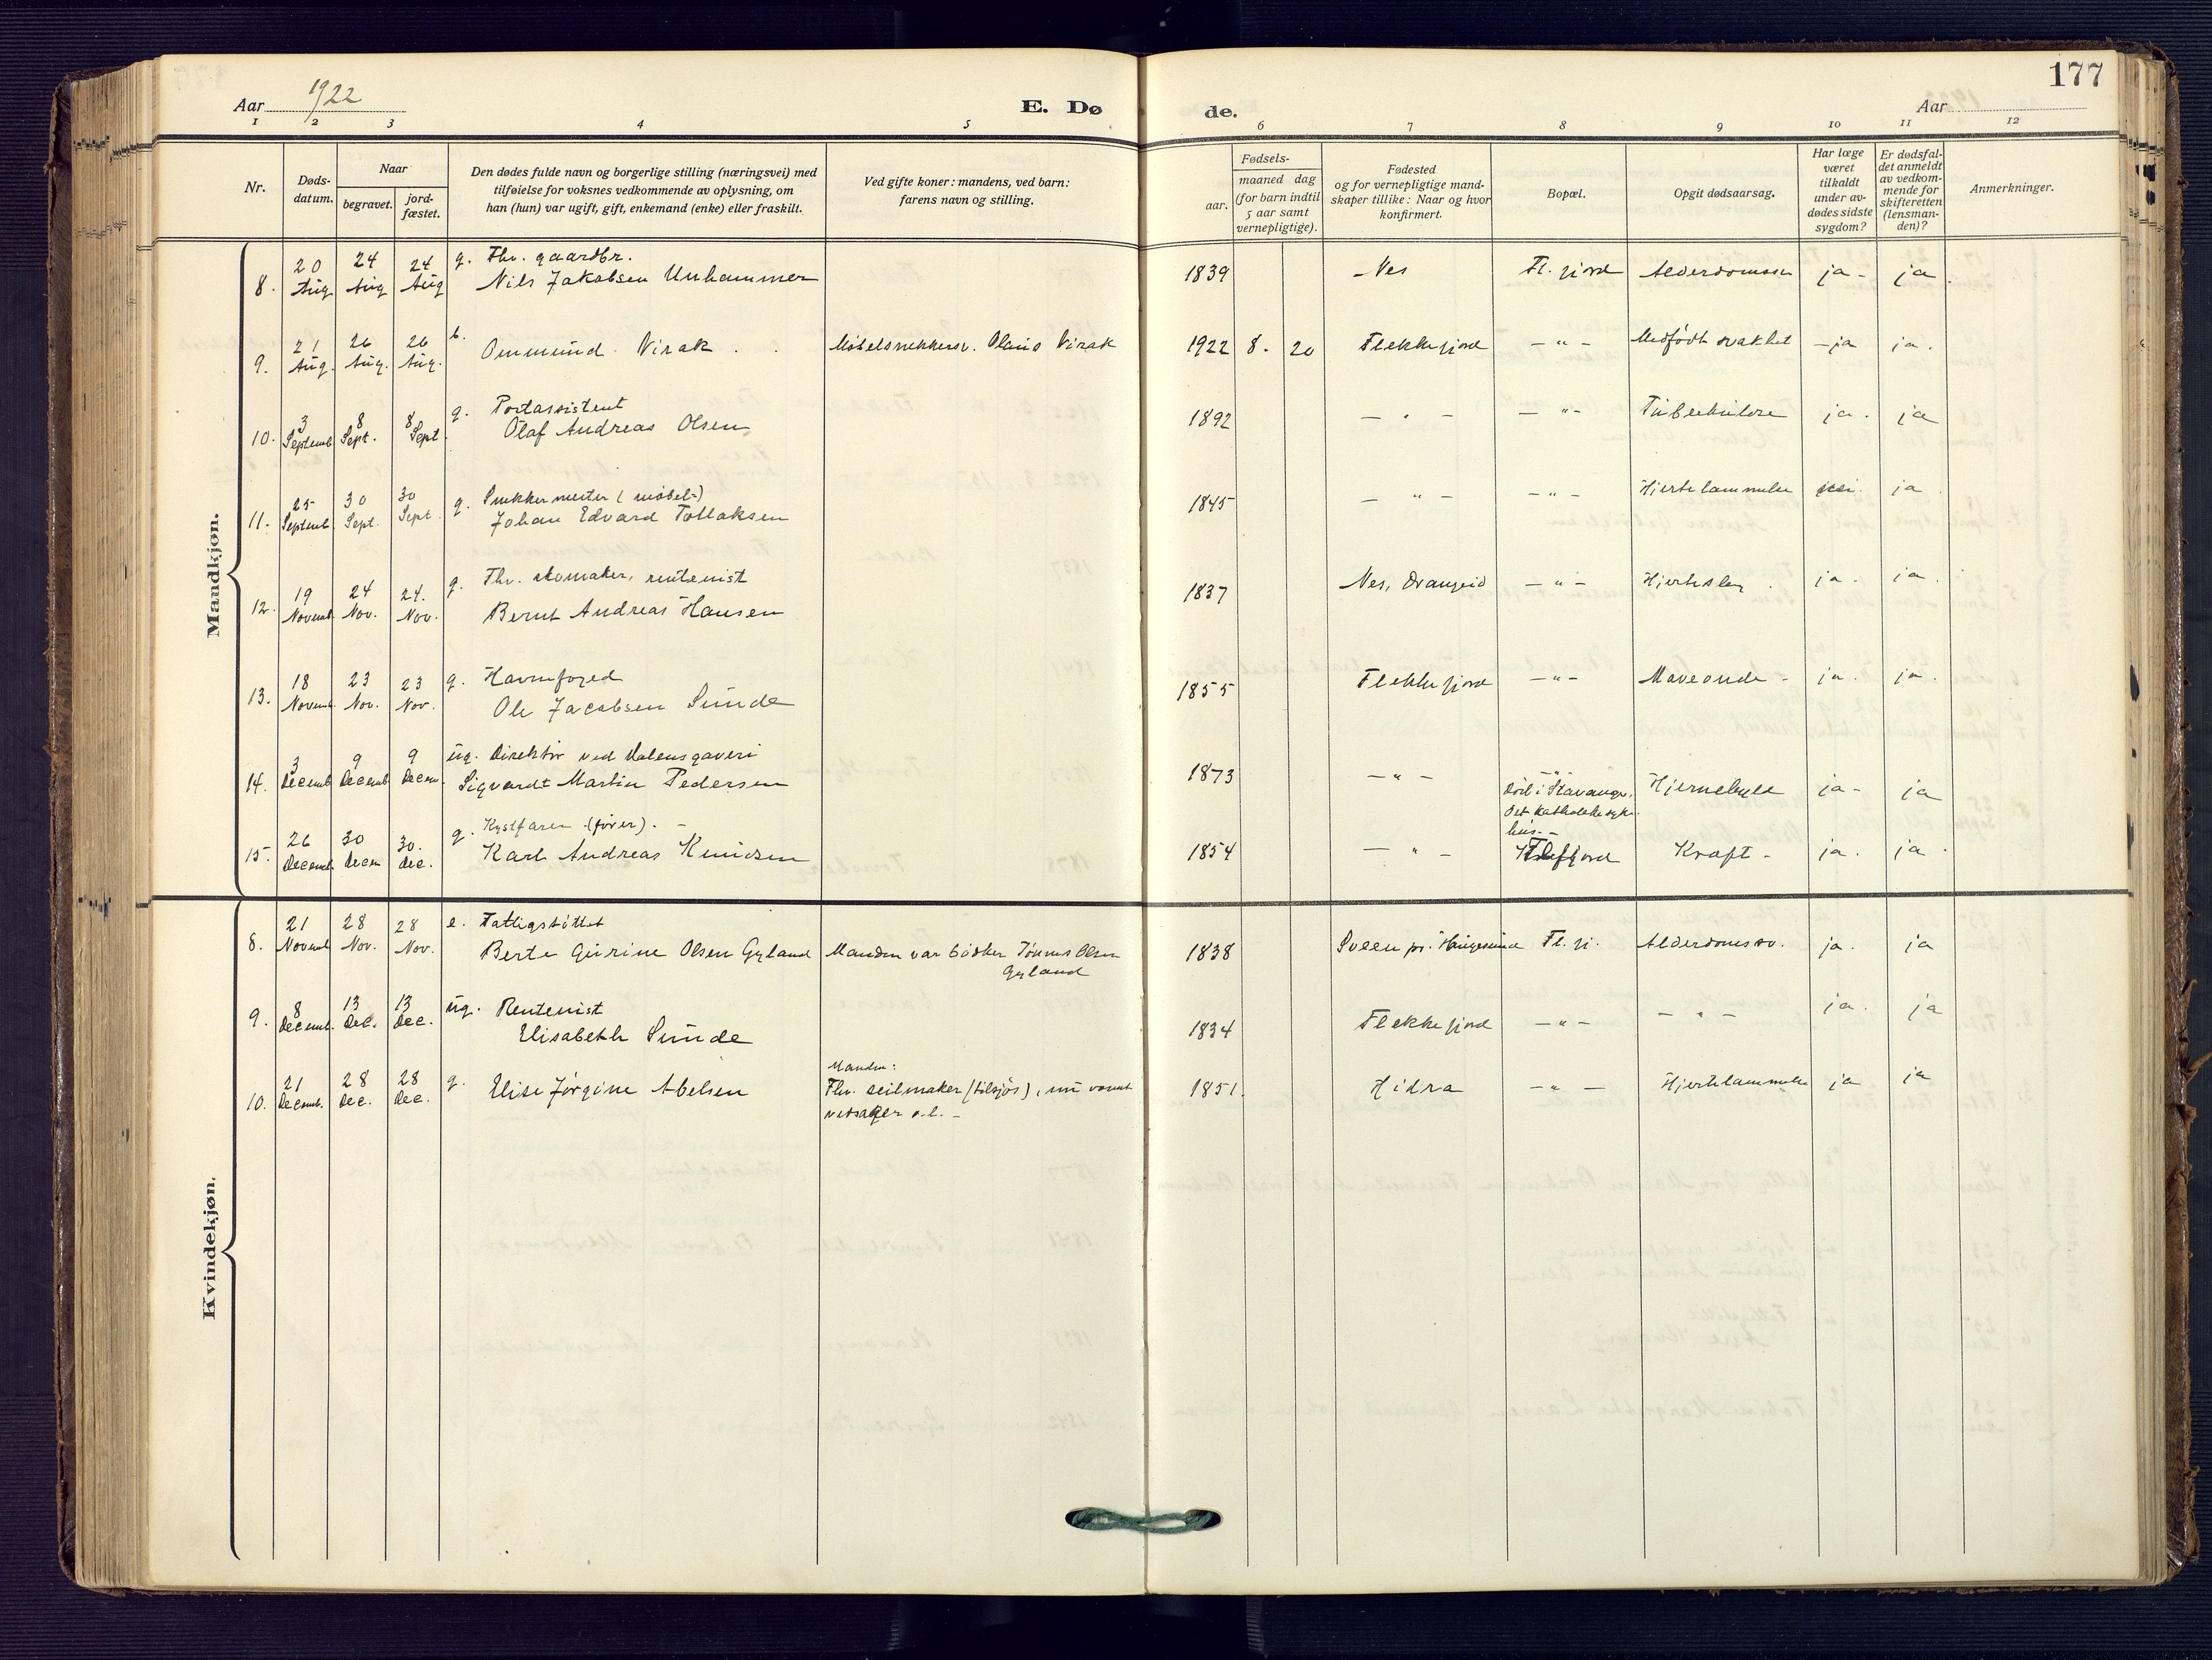 177
Aar 1922
E. Dø de.
Aar
1 2 3 4 5 6 7 8 9 10 11 12
Nr.
Døds-
datum.
Naar
begravet.
jord-
fæstet.
Den dødes fulde navn og borgerlige stilling (næringsvei) med
tilføielse for voksnes vedkommende av oplysning, om
han (hun) var ugift, gift, enkemand (enke) eller fraskilt.
Ved gifte koner: mandens, ved barn:
farens navn og stilling.
Fødsels-
aar.
maaned dag
(for barn indtil
5 aar samt
vernepligtige).
Fødested
og for vernepligtige mand-
skaper tillike: Naar og hvor
konfirmert.
Bopæl.
Opgit dødsaarsag.
Har læge
været
tilkaldt
under av-
dødes sidste
sygdom?
Er dødsfal-
det anmeldt
av vedkom-
mende for
skifteretten
(lensman-
den)?
Anmerkninger.
Mandkjøn.
8. 20 Aug 24 Aug 24 Aug g. Fhv. gaardbr.
Nils Jakobsen Unhammer 1839 Nes Fl. fjord Alderdomssv ja - ja
9. 21 Aug. 26 Aug. 26 Aug. b. Ommund Virak Møbelsnekkersv. Olaus Virak 1922 8. 20 Flekkefjord -"- Medfødt svakhet - ja ja.
10. 3 Septemb 8 Sept. 8 Sept. g. Postassistent
Olaf Andreas Olsen 1892 - " - - " - Tuberkulose ja. ja
11. 25 Septemb 30 Sept. 30 Sept. g. Snekkermester (møbel-)
Johan Edvard Tollaksen 1845 - " - - " - Hjertelammelse nei. ja
12. 19 Novemb 24 Nov. 24. Nov. g. Fhv. skomaker, rentenist
Bernt Andreas Hansen 1837 Nes, Drangeid - " - Hjerteslag ja. ja.
13. 18 Novemb. 23 Nov. 23 Nov. g. Havnefoged
Ole Jacobsen Sunde 1855 Flekkefjord - " - Maveonde - ja. ja.
14. 3 Decemb 9 Decemb 9 Decem. ug. Direktør ved Halens gaveri
Sigvardt Martin Pedersen 1873 - " - - " -
død i Stavanger.
Det katholske syke-
hus. -
Hjernebyld ja - ja
15. 26 Decemb. 30 Decem 30. Dec. g. Kystfarer (fører). -
Karl Andreas Knudsen 1854 - " - Flefjord Kræft - ja. ja.
Kvindekjøn.
8. 21 Novemb 28 Nov. 28 Nov. e. Fattigstøttet
Berte Gurine Olsen Gyland Manden var bødker Tønnes Olsen
Gyland 1838 Sveen pr. Haugesund Fl. fj. Alderdomssv. ja. ja
9. 8 Decemb. 13 Dec. 13 Dec. ug. Rentenist
Elisabeth Sunde 1834 Flekkefjord - " - - " - ja. ja
10. 21 Decemb. 28 Dec. 28 Dec. g. Elise Jørgine Abelsen
Manden:
Fhv. seilmaker (tilsjøs), nu
vedsager o.l. - 1851. Hidra - " - Hjertelammelse ja ja